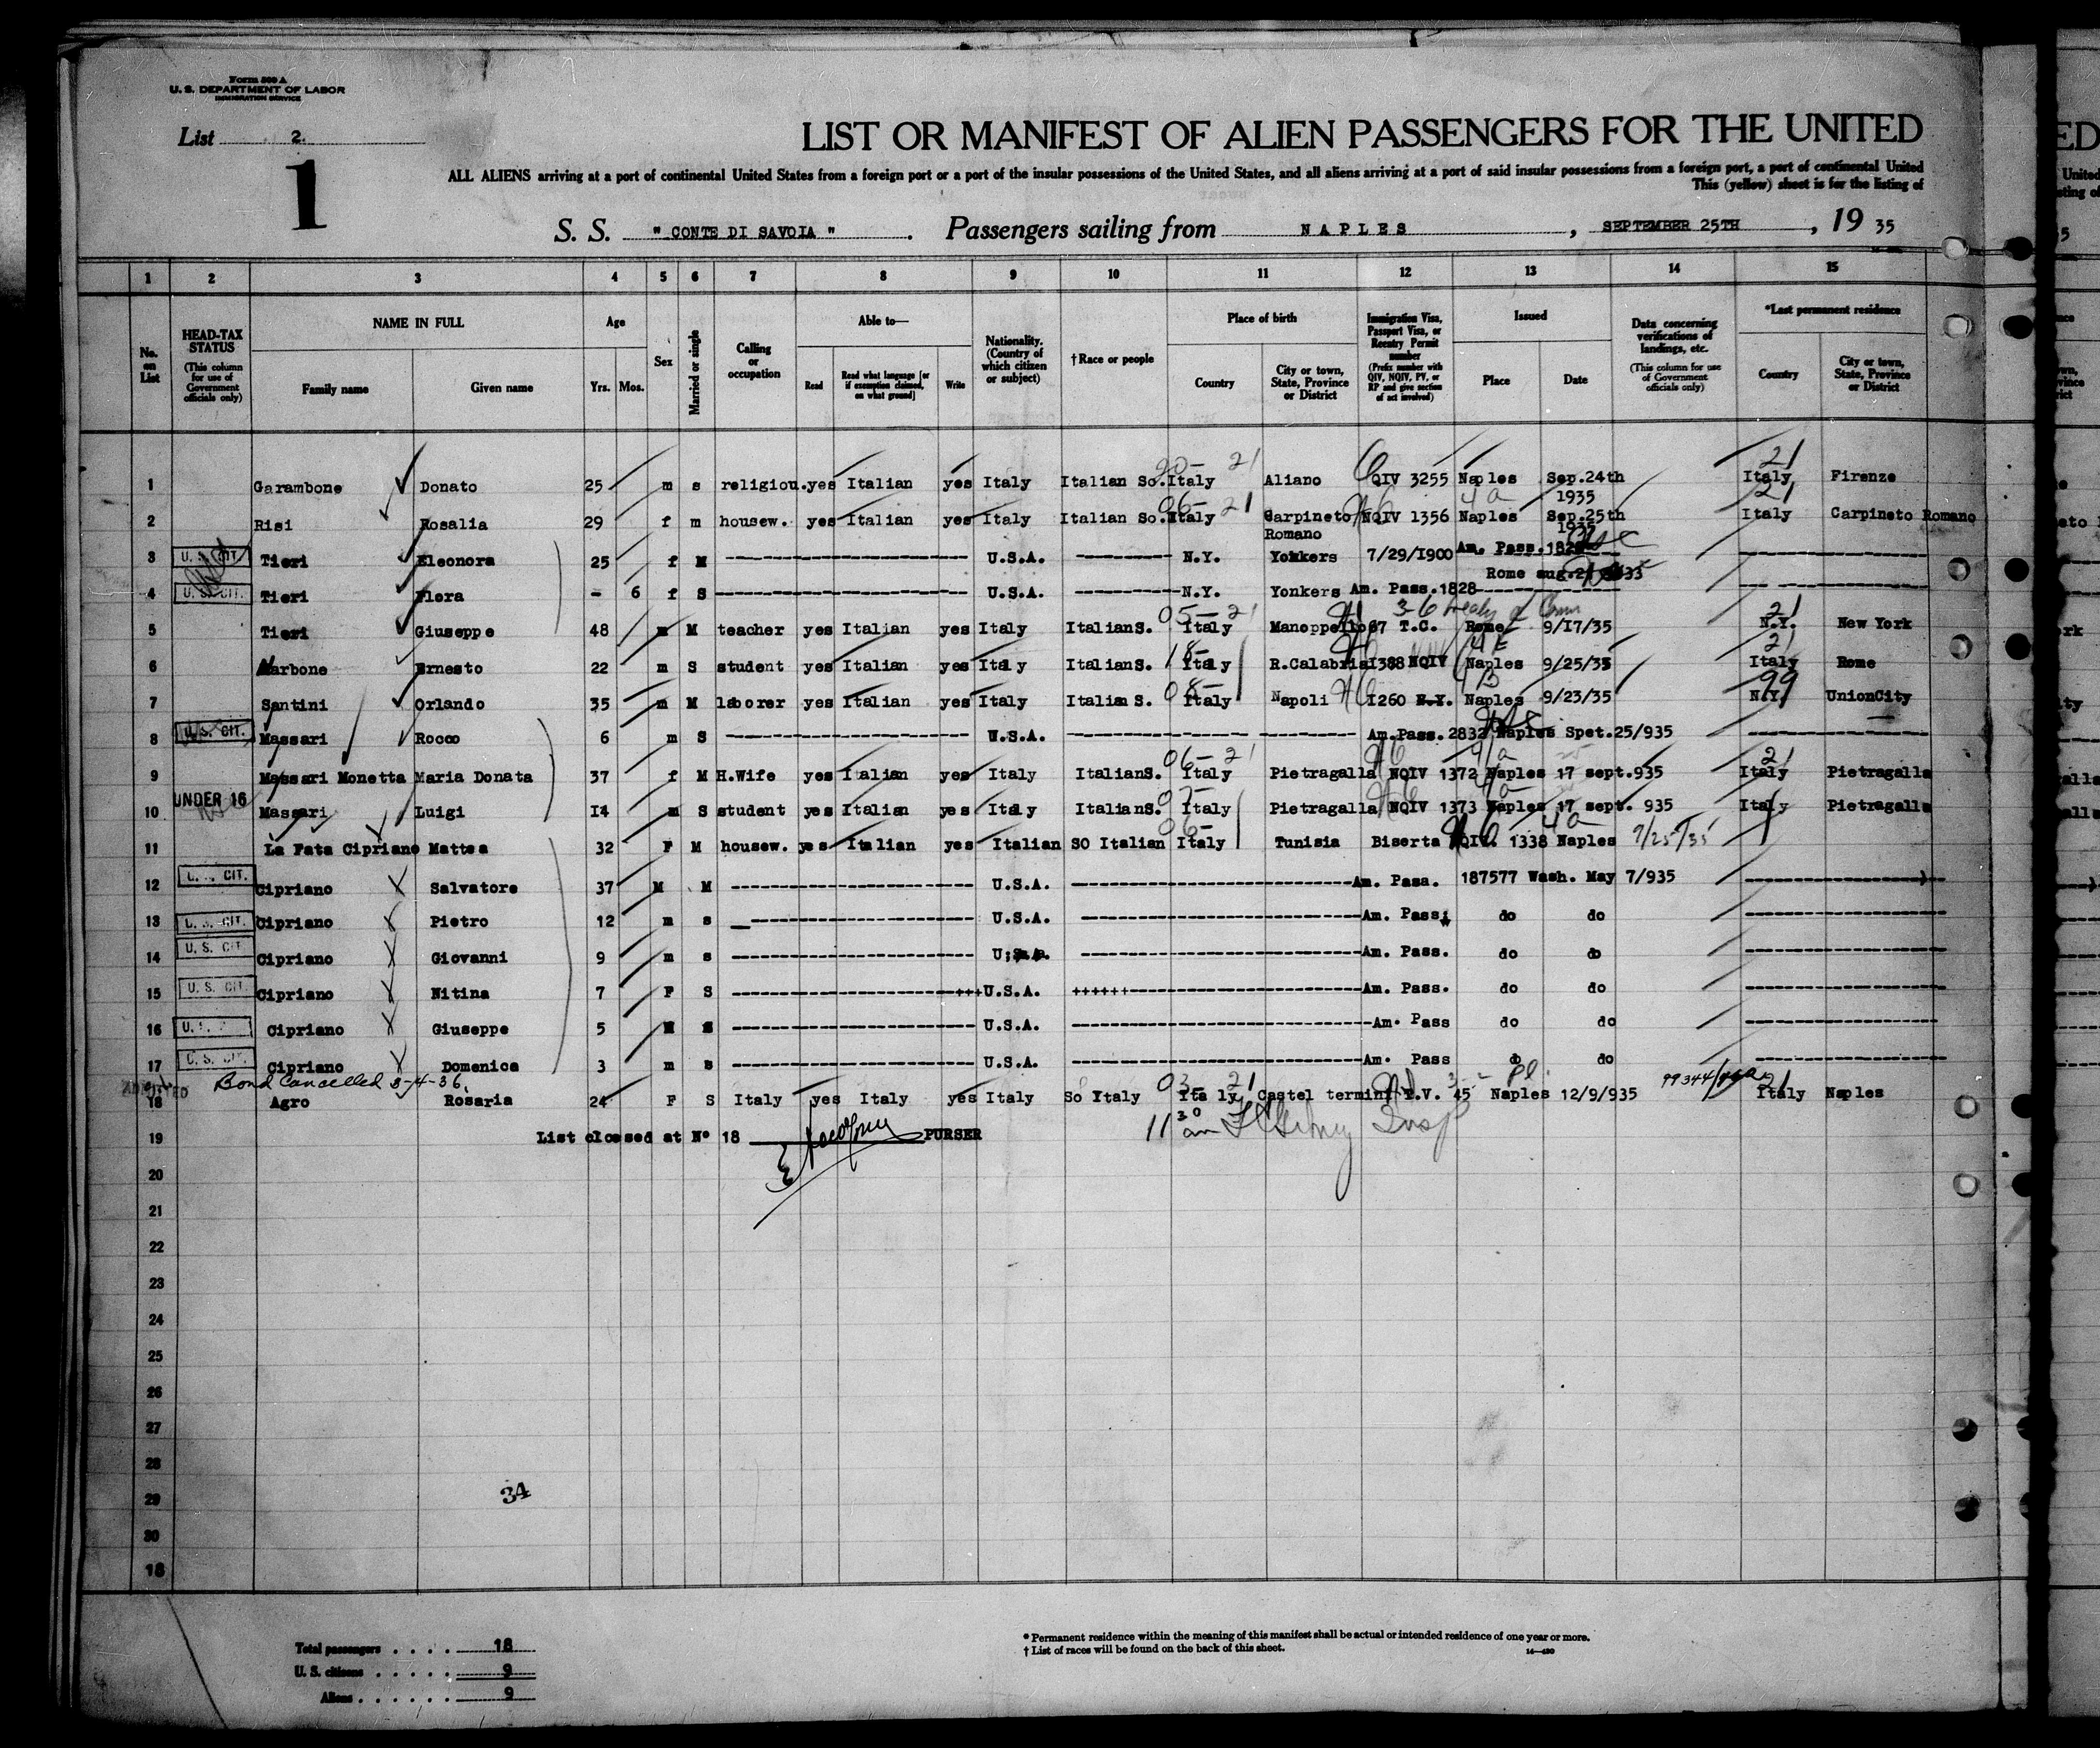 Form 500 A
U. S. DEPARTMENT OF LABOR
IMMIGRATION SERVICE
List 2.
1
LIST OR MANIFEST OF ALIEN PASSENGERS FOR THE UNITED
ALL ALIENS arriving at a port of continental United States from a foreign port or a port of the insular possessions of the United States, and all aliens arriving at a port of said insular possessions from a foreign port, a port of continental United
This (yellow) sheet is for the listing of
S. S. " CONTE DI SAVOIA " . Passengers sailing from NAPLES , SEPTEMBER 25TH , 19 35
1 2 3 4 5 6 7 8 9 10 11 12 13 14 15
No. on List
HEAD-TAX STATUS (This column for use of Government officials only)
NAME IN FULL
Family name Given name
Age
Yrs. Mos.
Sex
Married or single
Calling or occupation
Able to—
Read Read what language [or if exemption claimed, on what ground] Write
Nationality. (Country of which citizen or subject)
†Race or people
Place of birth
Country City or town, State, Province or District
Immigration Visa, Passport Visa, or Reentry Permit number (Prefix number with QIV, NQIV, PV, or RP and give section of act involved)
Issued
Place Date
Data concerning verifications of landings, etc. (This column for use of Government officials only)
*Last permanent residence
Country City or town, State, Province or District
1 Garambone Donato 25 m s religiou. yes Italian yes Italy Italian So. Italy Aliano QIV 3255 Naples Sep.24th 1935 Italy Firenze
2 Risi Rosalia 29 f m housew. yes Italian yes Italy Italian So. Italy Carpineto Romano NQIV 1356 Naples Sep.25th 1935 Italy Carpineto Romano
3 U. S. CIT. Tieri Eleonora 25 f M U.S.A. N.Y. Yonkers 7/29/1900 Am. Pass.1828
Rome aug.
4 U. S. CIT. Tieri Flora - 6 f S U.S.A. N.Y. Yonkers Am. Pass.1828
5 Tieri Giuseppe 48 m M teacher yes Italian yes Italy ItalianS. Italy Manoppello 67 T.C. Rome 9/17/35 N.Y. New York
6 Narbone Ernesto 22 m S student yes Italian yes Italy ItalianS. Italy R.Calabria 1388 NQIV Naples 9/25/35 Italy Rome
7 Santini Orlando 35 m M laborer yes Italian yes Italy Italian S. Italy Napoli 1260 N.Y. Naples 9/23/35 N.Y. UnionCity
8 U. S. CIT. Massari Rocco 6 m S U.S.A. Am.Pass.2832 Naples Spet.25/935
9 Massari Monetta Maria Donata 37 f M H.Wife yes Italian yes Italy ItalianS. Italy Pietragalla NQIV 1372 Naples 17 sept.935 Italy Pietragalla
10 UNDER 16 Massari Luigi 14 m S student yes Italian yes Italy ItalianS. Italy Pietragalla NQIV 1373 Naples 17 sept. 935 Italy Pietragalla
11 La Fata Cipriano Mattea 32 F M housew. yes Italian yes Italian SO Italian Italy Tunisia Biserta NQIV. 1338 Naples 9/25/35
12 U. S. CIT. Cipriano Salvatore 37 M M U.S.A. Am. Pasa. 187577 Wash. May 7/935
13 U. S. CIT. Cipriano Pietro 12 m s U.S.A. Am. Pass. do do
14 U. S. CIT. Cipriano Giovanni 9 m s U.S.A. Am. Pass. do do
15 U. S. CIT. Cipriano Nitina 7 F S +++U.S.A. ++++++ Am. Pass. do do
16 Cipriano Giuseppe 5 U.S.A. Am. Pass do do
17 U. S. CIT. Cipriano Domenica 3 m s U.S.A. Am. Pass do do
ADMITTED Bond Cancelled 3-4-36.
18 Agro Rosaria 24 F S Italy yes Italy yes Italy So Italy Italy Castel termini P.V. 45 Naples 12/9/935 99344 Italy Naples
19 List closed at N° 18 PURSER 11 30 am Insp
20
21
22
23
24
25
26
27
28
29
30
18
34
Total passengers . . . . 18
U. S. citizens . . . . . 9
Aliens . . . . . . 9
* Permanent residence within the meaning of this manifest shall be actual or intended residence of one year or more.
† List of races will be found on the back of this sheet.